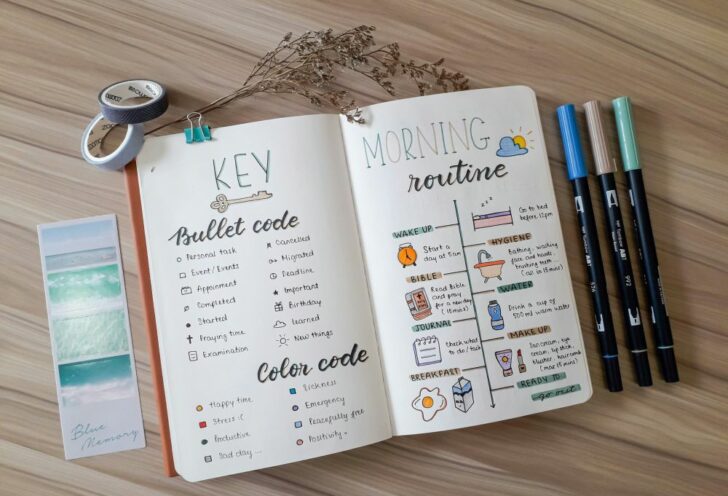 KEY
Bullet code
Personal task
Event / Events
Appoinment
Completed
Started
Praying time
Examination
Cancelled
Migrated
Deadline
Important
Birthday
Learned
New things
Color code
Happy time
Stress :(
Productive
Bad day ...
Sickness
Emergency
Peacefully free
Positivity
MORNING
routine
zzz
Go to bed
before 12pm
WAKE UP
Start a
day at 5am
HYGIENE
Bathing, washing
face and hands,
brushing teeth
BIBLE
Read Bible
and pray
for a new day
(15mins)
WATER
Drink a cup of
500ml warm water
JOURNAL
Check what
to do / task
MAKE UP
Suncream, eye
cream, lip stick,
blusher, hair comb
(max 15 mins)
BREAKFAST
READY TO
go out
Blue
Memory